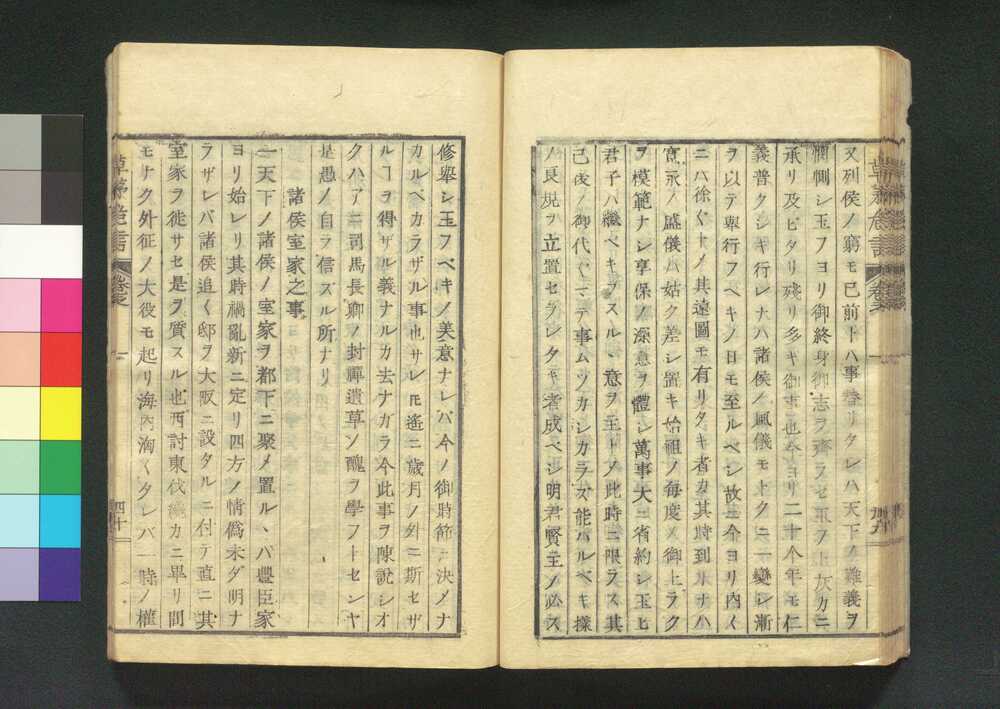 又列侯ノ窮モ已前トハ事替リタレハ天下ノ難義ヲ
憫惻シ玉フヨリ御終身御志ヲ齊ラセ玉フト灰カニ
承リ及ビタリ殘リ多キ御事也今ヨリ二十个年モ仁
義普クシキ行レナハ諸侯ノ風儀モトクニ一變シ漸
ヲ以テ擧行フヘキノ日モ至ルベシ故ニ今ヨリ内〱
ニハ徐〱トノ其遠圖モ有リタキ者カ其時到リナハ
寛永ノ盛儀ハ姑ク差シ置キ始祖ノ毎度ノ御上ラク
ヲ模範ナシ享保ノ深意ヲ體シ萬事大ニ省約シ玉ヒ
君子ハ繼ベキヲスル、意ヲ主トノ此時ニ限ラス其
已後ノ御代〱マテ事ムツカシカラズ能ハルベキ樣
ノ良規ヲ立置セラレタキ者成ベシ明君賢主ノ必ス
草茅危言 卷之一
修擧シ玉フベキノ美意ナレバ今ノ御時節ニ決メナ
カルベカラザル事也サレ𪜈遙ニ歳月ノ外ニ斯セザ
ルヿヲ得ザル義ナルカ去ナガラ今此事ヲ陳説シオ
クハアニ司馬長卿ノ封禪遺草ノ醜ヲ學フトセンヤ
是愚ノ自ラ信ズル所ナリ
諸侯室家之事
一天下ノ諸侯ノ室家ヲ都下ニ聚メ置ル、ハ豐臣家
ヨリ始レリ其時禍亂新ニ定リ四方ノ情僞未ダ明ナ
ラザレバ諸侯追〱邸ヲ大阪ニ設タルニ付テ直ニ其
室家ヲ徙サセ是ヲ質スル也西討東伐纔カニ畢リ間
モナク外征ノ大役モ起リ海内洶〱タレバ一時ノ權
草茅危言 卷之一 四十